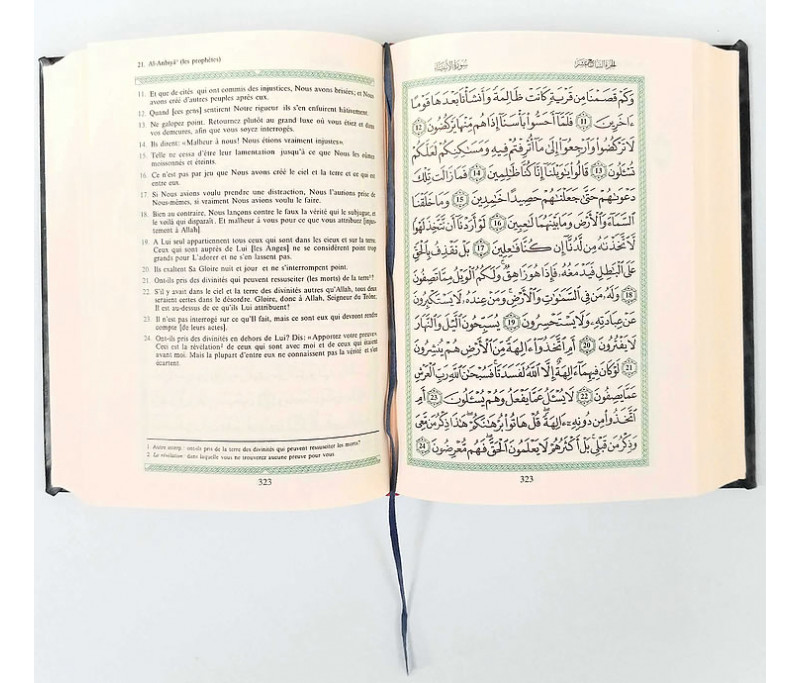 21. Al-Anbiyâ' (les prophètes)
11. Et que de cités qui ont commis des injustices, Nous avons brisées; et Nous
avons créé d'autres peuples après eux.
12. Quand [ces gens] sentirent Notre rigueur ils s'en enfuirent hâtivement.
13. Ne galopez point. Retournez plutôt au grand luxe où vous étiez et dans
vos demeures, afin que vous soyez interrogés.
14. Ils dirent: «Malheur à nous! Nous étions vraiment injustes».
15. Telle ne cessa d'être leur lamentation jusqu'à ce que Nous les eûmes
moissonnés et éteints.
16. Ce n'est pas par jeu que Nous avons créé le ciel et la terre et ce qui est
entre eux.
17. Si Nous avions voulu prendre une distraction, Nous l'aurions prise de
Nous-mêmes, si vraiment Nous avions voulu le faire.
18. Bien au contraire, Nous lançons contre le faux la vérité qui le subjugue, et
le voilà qui disparaît. Et malheur à vous pour ce que vous attribuez [injus-
tement à Allah].
19. A Lui seul appartiennent tous ceux qui sont dans les cieux et sur la terre.
Ceux qui sont auprès de Lui [les Anges] ne se considèrent point trop
grands pour L'adorer et ne s'en lassent pas.
20. Ils exaltent Sa Gloire nuit et jour et ne s'interrompent point.
21. Ont-ils pris des divinités qui peuvent ressusciter (les morts) de la terre¹?
22. S'il y avait dans le ciel et la terre des divinités autres qu'Allah, tous deux
seraient certes dans le désordre. Gloire, donc à Allah, Seigneur du Trône;
Il est au-dessus de ce qu'ils Lui attribuent!
23. Il n'est pas interrogé sur ce qu'Il fait, mais ce sont eux qui devront rendre
compte [de leurs actes].
24. Ont-ils pris des divinités en dehors de Lui? Dis: «Apportez votre preuve».
Ceci est la révélation² de ceux qui sont avec moi et de ceux qui étaient
avant moi. Mais la plupart d'entre eux ne connaissent pas la vérité et s'en
écartent.
1 Autre sens: ont-ils pris de la terre des divinités qui peuvent ressusciter les morts?
2 La révélation: dans laquelle vous ne trouverez aucune preuve pour vous.
323
سورة الأنبياء
الجزء السابع عشر
وَكَمْ قَصَمْنَا مِن قَرْيَةٍ كَانَتْ ظَالِمَةً وَأَنشَأْنَا بَعْدَهَا قَوْمًا
ءَاخَرِينَ 11 فَلَمَّآ أَحَسُّوا۟ بَأْسَنَآ إِذَا هُم مِّنْهَا يَرْكُضُونَ 12
لَا تَرْكُضُوا۟ وَٱرْجِعُوٓا۟ إِلَىٰ مَآ أُتْرِفْتُمْ فِيهِ وَمَسَٰكِنِكُمْ لَعَلَّكُمْ
تُسْـَٔلُونَ 13 قَالُوا۟ يَٰوَيْلَنَآ إِنَّا كُنَّا ظَٰلِمِينَ 14 فَمَا زَالَت تِّلْكَ
دَعْوَىٰهُمْ حَتَّىٰ جَعَلْنَٰهُمْ حَصِيدًا خَٰمِدِينَ 15 وَمَا خَلَقْنَا
ٱلسَّمَآءَ وَٱلْأَرْضَ وَمَا بَيْنَهُمَا لَٰعِبِينَ 16 لَوْ أَرَدْنَآ أَن نَّتَّخِذَ لَهْوًا
لَّٱتَّخَذْنَٰهُ مِن لَّدُنَّآ إِن كُنَّا فَٰعِلِينَ 17 بَلْ نَقْذِفُ بِٱلْحَقِّ
عَلَى ٱلْبَٰطِلِ فَيَدْمَغُهُۥ فَإِذَا هُوَ زَاهِقٌ ۚ وَلَكُمُ ٱلْوَيْلُ مِمَّا تَصِفُونَ
18 وَلَهُۥ مَن فِى ٱلسَّمَٰوَٰتِ وَٱلْأَرْضِ ۚ وَمَنْ عِندَهُۥ لَا يَسْتَكْبِرُونَ
عَنْ عِبَادَتِهِۦ وَلَا يَسْتَحْسِرُونَ 19 يُسَبِّحُونَ ٱلَّيْلَ وَٱلنَّهَارَ
لَا يَفْتُرُونَ 20 أَمِ ٱتَّخَذُوٓا۟ ءَالِهَةً مِّنَ ٱلْأَرْضِ هُمْ يُنشِرُونَ
21 لَوْ كَانَ فِيهِمَآ ءَالِهَةٌ إِلَّا ٱللَّهُ لَفَسَدَتَا ۚ فَسُبْحَٰنَ ٱللَّهِ رَبِّ ٱلْعَرْشِ
عَمَّا يَصِفُونَ 22 لَا يُسْـَٔلُ عَمَّا يَفْعَلُ وَهُمْ يُسْـَٔلُونَ 23 أَمِ
ٱتَّخَذُوا۟ مِن دُونِهِۦٓ ءَالِهَةً ۖ قُلْ هَاتُوا۟ بُرْهَٰنَكُمْ ۖ هَٰذَا ذِكْرُ مَن مَّعِىَ
وَذِكْرُ مَن قَبْلِى ۗ بَلْ أَكْثَرُهُمْ لَا يَعْلَمُونَ ٱلْحَقَّ ۖ فَهُم مُّعْرِضُونَ 24
323